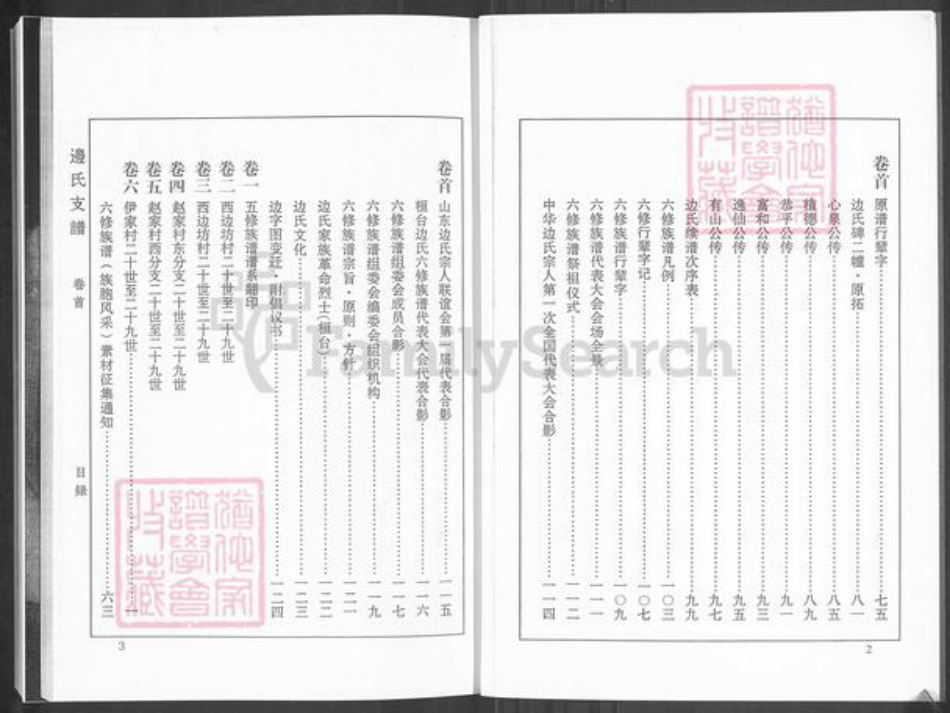 卷首
原谱行辈字 七五
边氏碑二幢·原拓 八一
心泉公传 八五
積德公传 八九
恭平公传 九一
富和公传 九三
逸仙公传 九五
有山公传 九七
边氏续谱次序表 九九
六修族谱凡例 一〇三
六修行辈字记 一〇七
六修族谱行辈字 一〇九
六修族谱代表大会会场全景 一一一
六修族谱祭祖仪式 一一二
中华边氏宗人第一次全国代表大会合影 一一四
2
卷首
山东边氏宗人联谊会第一届代表合影 一一五
桓台边氏六修族谱代表大会代表合影 一一六
六修族谱组委会成员合影 一一七
六修族谱组委会编委会组织机构 一一九
六修族谱宗旨·原则·方针 一二一
边氏家族革命烈士(桓台) 一二二
边氏文化 一二三
边字图变迁·附倡议书 一二四
卷一 五修族谱谱系翻印
卷二 西边坊村二十世至二十九世
卷三 西边坊村二十世至二十九世
卷四 赵家村东分支二十世至二十九世
卷五 赵家村西分支二十世至二十九世
卷六 伊家村二十世至二十九世 一
六修族谱(族胞风采)素材征集通知 六三
邊氏支譜 卷首 目録
3
猶他家譜學會收藏
猶他家譜學會收藏
FamilySearch